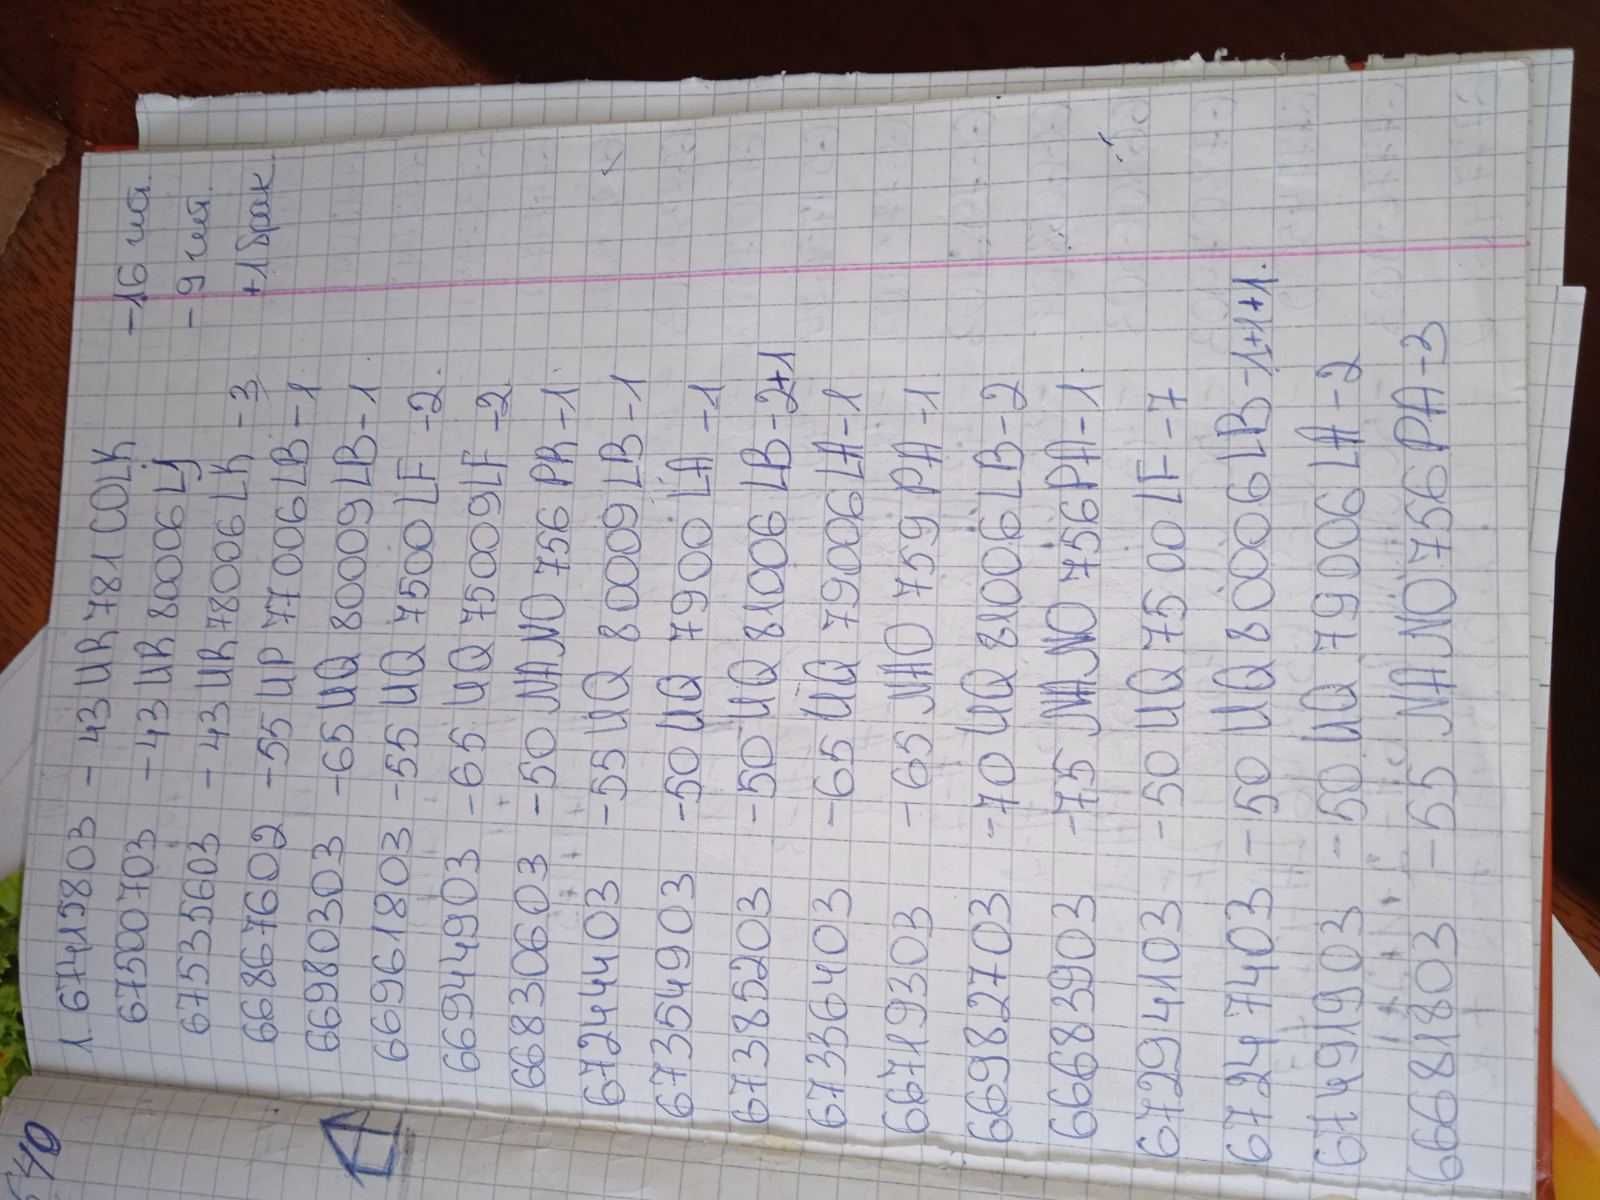 1. 67415803 - 43 UR 781 COLK - 16 шт.
67500703 - 43 UR 8006 LJ - 9 шт.
67535603 - 43 UR 78006 LK - 3 +1 брак
66867602 - 55 UP 77006 LB - 1
66980303 - 65 UQ 80009 LB - 1
66961803 - 55 UQ 7500 LF - 2
66944903 - 65 UQ 75009 LF - 2
66830603 - 50 NANO 756 PR - 1
67244403 - 55 UQ 80009 LB - 1
67354903 - 50 UQ 7900 LA - 1
67385203 - 50 UQ 81006 LB - 2+1
67336403 - 65 UQ 79006 LA - 1
66719303 - 65 NAO 759 PA - 1
66982703 - 70 UQ 81006 LB - 2
66683903 - 75 NANO 756 PA - 1.
67294103 - 50 UQ 7500 LF - 7
67247403 - 50 UQ 80006 LB - 1+1+1.
67491903 - 50 UQ 79006 LA - 2
66681803 - 55 NANO 756 PA - 3